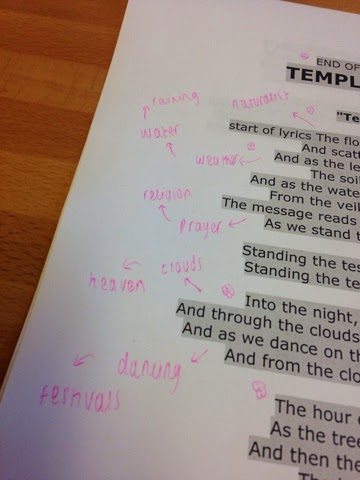 END OF
TEMPL
"Te
raining naturalist
start of lyrics The flo
water
And scatt
weather
And as the le
The soil
religion
And as the wate
From the veil
The message reads
prayer
As we stand t
Standing the tes
clouds
Standing the te
heaven
Into the night,
And through the clouds
And as we dance on th
dancing
And from the clo
festivals
The hour o
As the tree
And then the